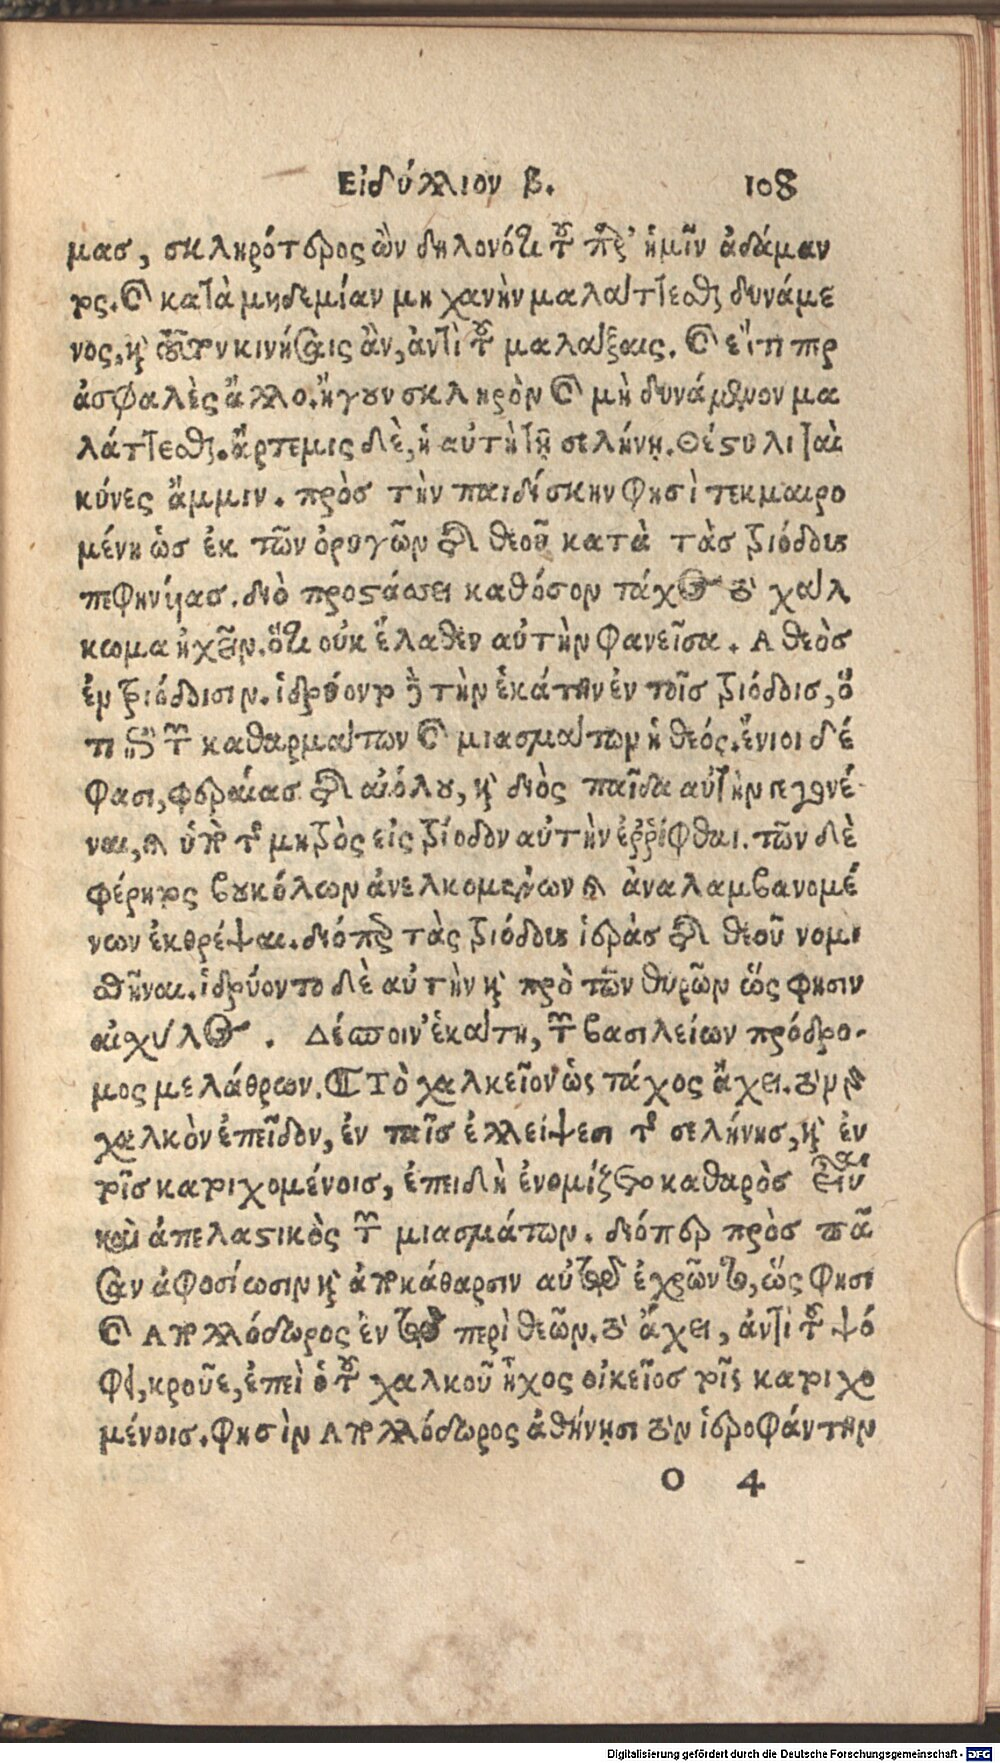 Εἰδύλλιον β. 108
μας, σκληρότερος ὢν δηλονότι τοῦ παρ' ἡμῖν ἀδάμαν
τος. καὶ κατὰ μηδεμίαν μηχανὴν μαλάττεσθαι δυνάμε
νος, καὶ τοῦτον κινήσαις ἂν, ἀντὶ τοῦ μαλάξαις. καὶ εἴ τι περ
ἀσφαλὲς ἄλλο. ἤγουν σκληρὸν καὶ μὴ δυνάμενον μα
λάττεσθαι. ἄρτεμις δὲ, ἡ αὐτὴ τῇ σελήνῃ. Θέστυλι ταὶ
κύνες ἄμμιν. πρὸς τὴν παιδίσκην φησὶ τεκμαιρο
μένη ὡς ἐκ τῶν ὀρυγῶν τῆς θεοῦ κατὰ τὰς τριόδους
πεφηνυίας. διὸ προστάσσει καθόσον τάχος τὸ χάλ
κωμα ἠχεῖν. ὅτι οὐκ ἔλαθεν αὐτὴν φανεῖσα. Α θεὸς
ἐν τριόδοισιν. ἱδρύοντο γὰρ τὴν ἑκάτην ἐν ταῖς τριόδοις, ὅ
τι ἐπὶ τῶν καθαρμάτων καὶ μιασμάτων ἡ θεός. ἔνιοι δέ
φασι, φεραίας τῆς αἰόλου, καὶ διὸς παῖδα αὐτὴν γεγονέ
ναι, καὶ ὑπὸ τῆς μητρὸς εἰς τρίοδον αὐτὴν ἐῤῥίφθαι. τῶν δὲ
φέρητος βουκόλων ἀνελκομένων καὶ ἀναλαμβανομέ
νων ἐκθρέψαι. διόπερ τὰς τριόδους ἱερὰς τῆς θεοῦ νομι
σθῆναι. ἱδρύοντο δὲ αὐτὴν καὶ πρὸ τῶν θυρῶν ὥς φησιν
αἰσχύλος. Δέσποιν' ἑκάτη, τῶν βασιλείων πρόδρο-
μος μελάθρων. ¶ Τὸ χαλκεῖον ὡς τάχος ἄχει. τὸν
χαλκὸν ἐπεῖδον, ἐν ταῖς ἐλλείψεσι τῆς σελήνης, καὶ ἐν
τοῖς κατοιχομένοις, ἐπειδὴ ἐνομίζετο καθαρὸς εἶναι
καὶ ἀπελαστικὸς τῶν μιασμάτων. διόπερ πρὸς πᾶ
σαν ἀφοσίωσιν καὶ ἀποκάθαρσιν αὐτῷ ἐχρῶντο, ὥς φησι
καὶ Ἀπολλόδωρος ἐν τῷ περὶ θεῶν. τὸ ἄχει, ἀντὶ τοῦ ψό
φει, κροῦε, ἐπεὶ ὁ τοῦ χαλκοῦ ἦχος οἰκεῖος τοῖς κατοιχο
μένοις. φησὶν Ἀπολλόδωρος ἀθήνησι τὸν ἱεροφάντην
O 4
Digitalisierung gefördert durch die Deutsche Forschungsgemeinschaft - DFG